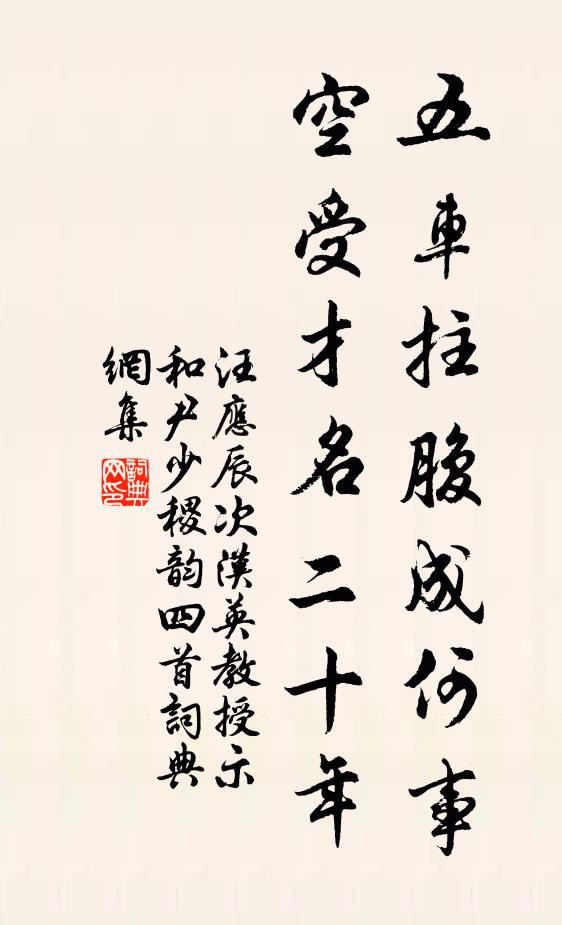 五車拄腹成何事
空受才名二十年
汪應辰次漢英教授示
和尹少稷韵四首詞典
網集
詞典
网印